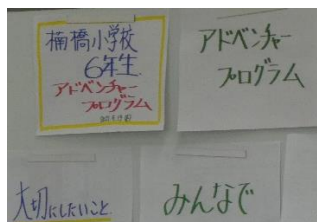 楠橋小学校
6年生
アドベンチャー
プログラム
アドベンチャー
プログラム
大切にしたいこと
みんなで